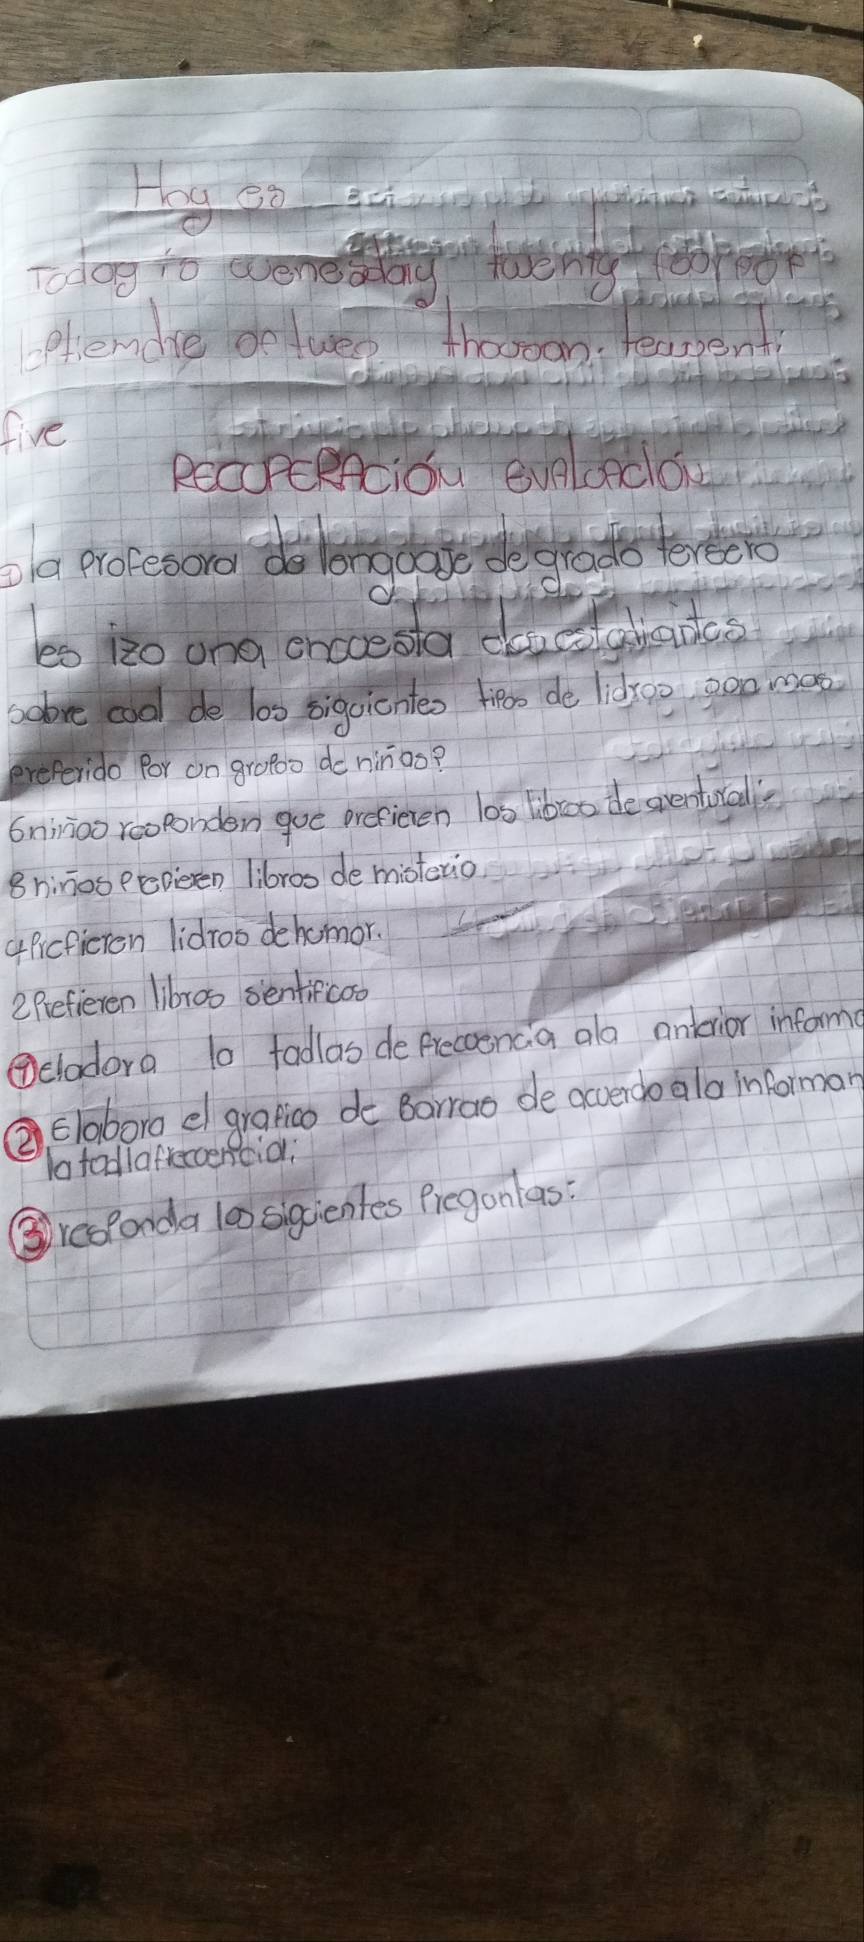 Hoy es
Today is wenesday twenty foor of
septiembre of tweo thousan. teauenti
five
RECUPERACIÓN EVALUACIÓN
la profesora de lenguage de grado tersero
les izo una encuesta a los estudiantes
sobre cual de los siguientes tipos de lidros son mas
preferido por un grupos de niñas?
6 niños responden que prefieren los libros de aventura
8 niños prefieren libros de misterio
4 prefieren lidros de humor.
2 Prefieren libros sientificos
① eladora la tadlas de frecuencia ala anterior informa
② Elabora el grafico de Barras de acuerdo ala informan
la tadla frecuencia:
③ responda las siguientes preguntas: